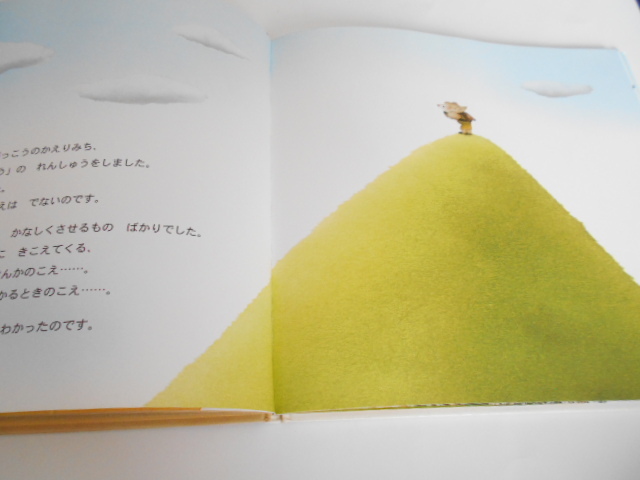 っこうのかえりみち、
」の れんしゅうをしました。
。
えは でないのです。
かなしくさせるもの ばかりでした。
に きこえてくる、
んかのこえ……。
かるときのこえ……。
わかったのです。